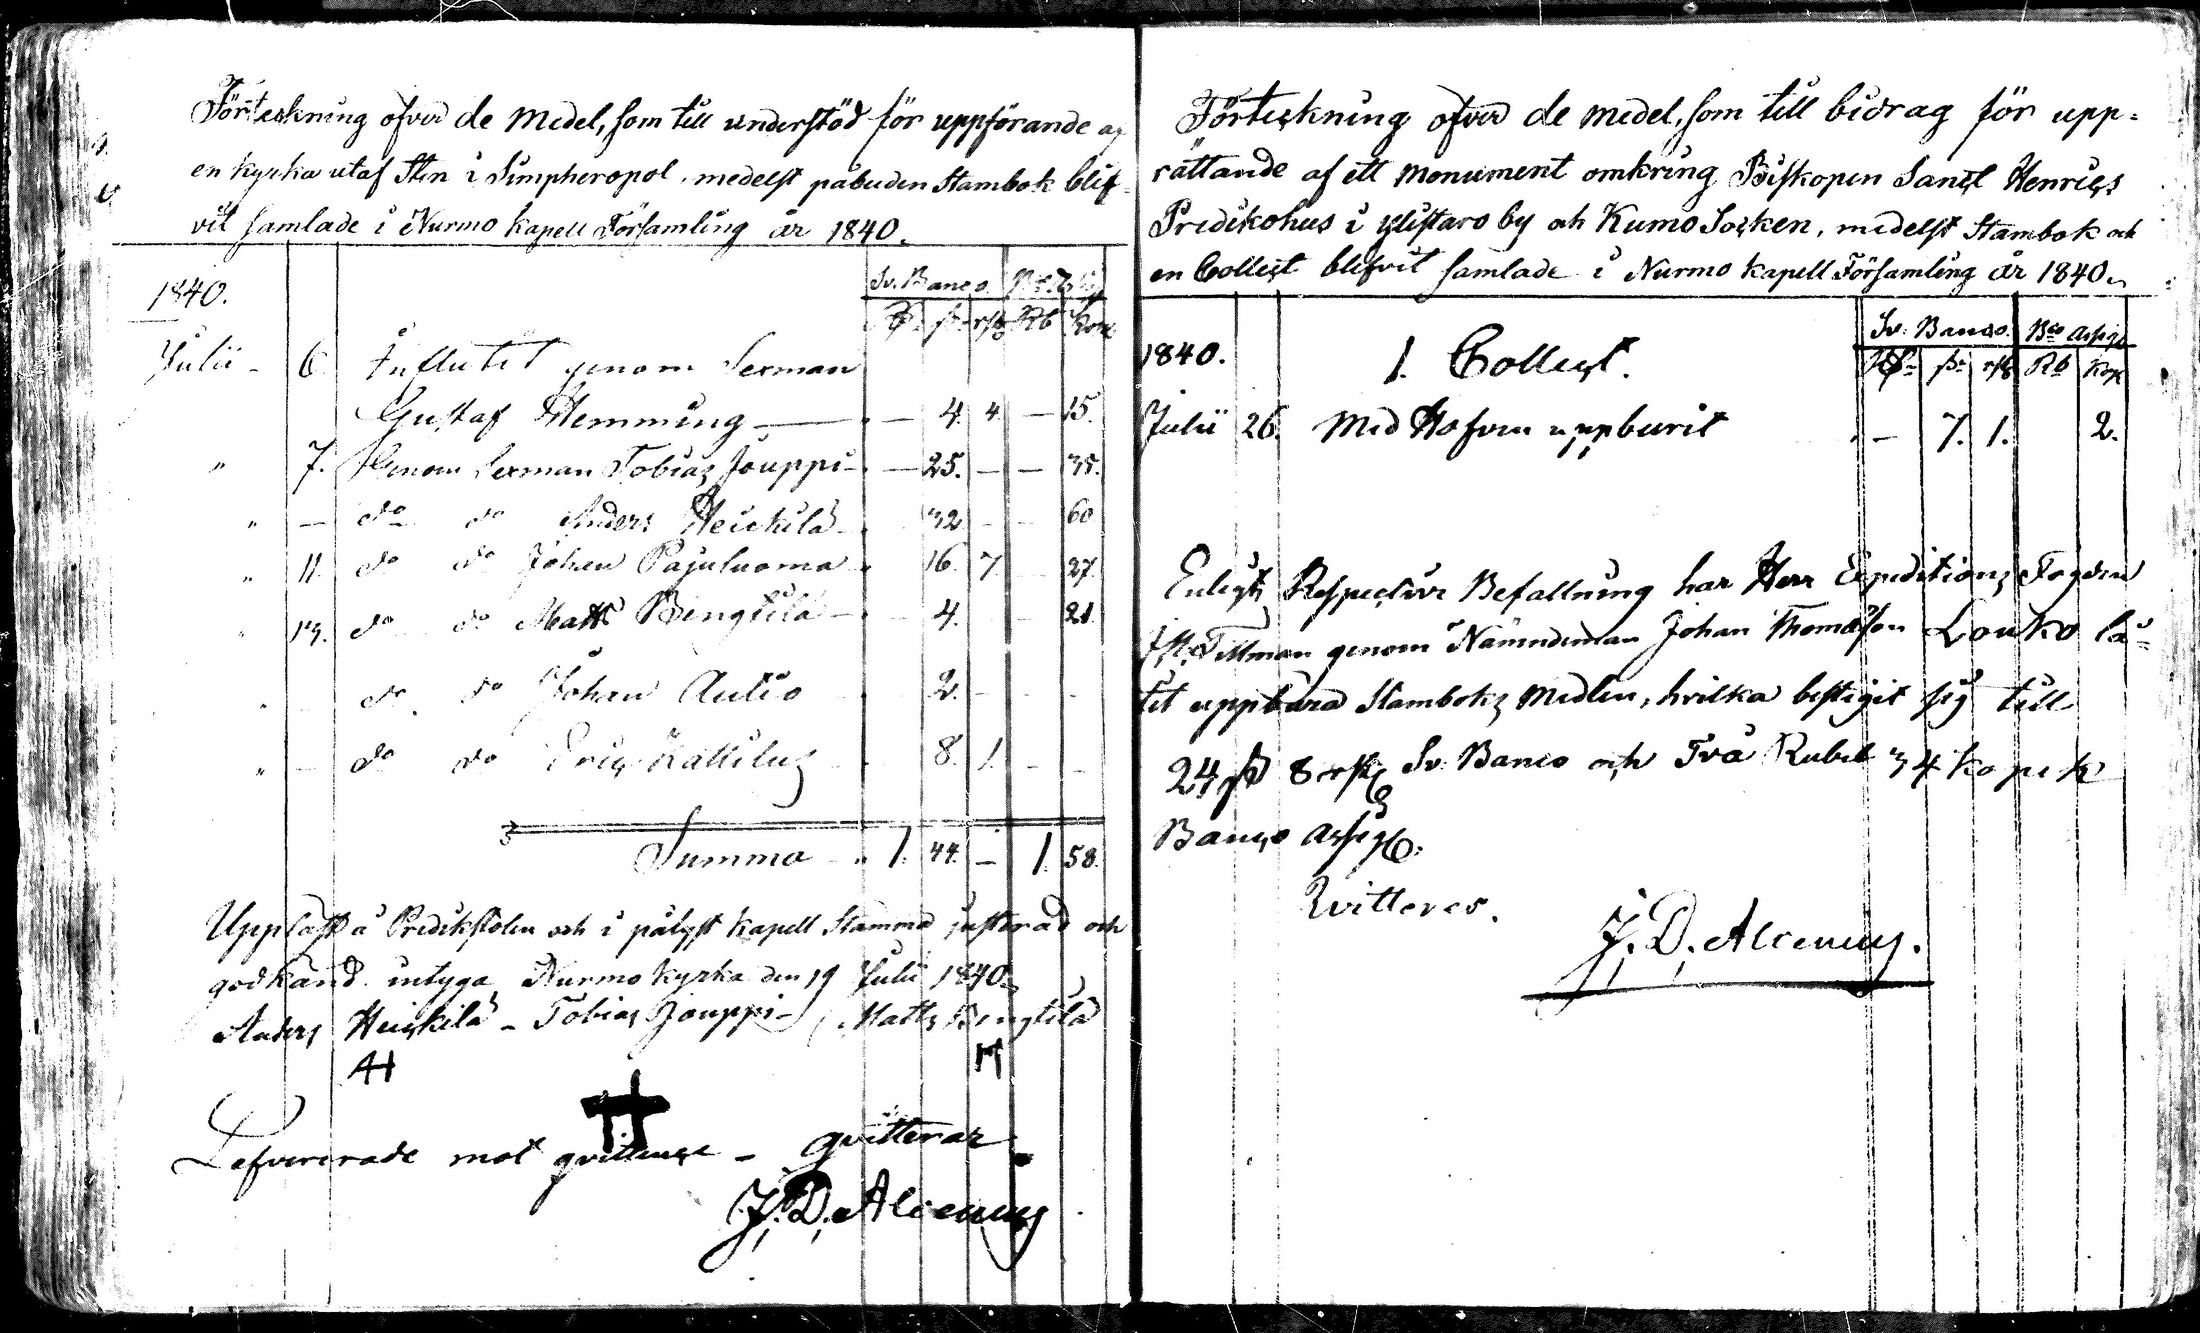 Förteckning öfver de Medel, som till understöd för uppförande af
en kyrka utaf Sten i Simpheropol, medelst påbuden Stambok blif-
vit samlade i Nurmo Kapell Församling år 1840.
1840.
Sv. Banco
Rd. s. rst. Rb. Kop.
Julii - 6. Influtit genom Sexman
Gustaf Hemming — — 4. 4. — 15.
" 7. Genom Sexman Tobias Jouppi — — 25. — — 35.
" — do do Anders Heickilä — 32 — — 60
" 11. do do Johan Pajuluoma 16. 7. 27.
" 13. do do Matts Bengtilä — 4. — 21.
" — do do Johan Autio 2. — — —
" — do do Eric Kattilus 8. 1. — —
Summa — 1. 44. — 1. 58.
Uppläst å Predikstolen och i pålyst Kapell Stämma justerad och
godkänd. intyga, Nurmo Kyrka den 19 Julii 1840.
Anders Heickilä - Tobias Jouppi - Matts Bengtilä
AH M
Lefvererade mot qvittence - qvitterar
J. D. Alcenius
Förteckning öfver de medel, som till bidrag för upp-
rättande af ett Monument omkring Biskopen Sanct Henrics
Predikohus i Ylistaro by och Kumo Socken, medelst Stambok och
en Collect blifvit samlade i Nurmo Kapell Församling år 1840.
1840. 1. Collect.
Sv. Banco. Bco Assign.
Rd. s. rst. Rb Kop
Julii 26. Med Hofven uppburit — 7. 1. 2.
Enligt Respective Befallning har Herr Expeditions Fogden
Tillman genom Nämndeman Johan Thomasson Louko lå-
tit uppbära Stamboks Medlen, hvilka bestigit sig till
24 s 8 rst Sv. Banco och Två Rubel 34 Kopek
Banco Assign.
Qvitteres.
J. D. Alcenius.